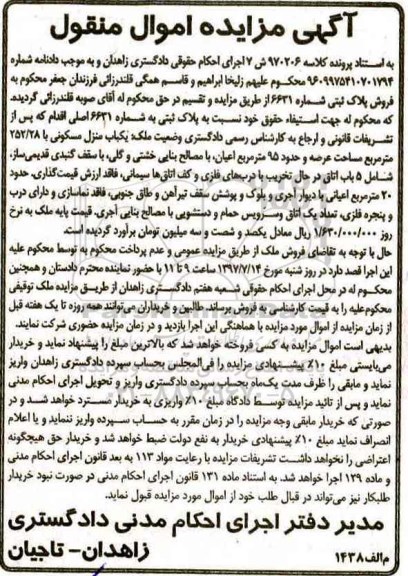 آگهی مزایده اموال منقول
به استناد پرونده کلاسه ۹۷۰۲۰۶ ش ۷ اجرای احکام حقوقی دادگستری زاهدان و به موجب دادنامه شماره
۹۶۰۹۹۷۵۴۱۰۷۰۱۷۹۴ محکوم علیهم زلیخا ابراهیم و قاسم همگی قلندرزائی فرزندان جعفر محکوم به
فروش پلاک ثبتی شماره ۶۶۳۱ از طریق مزایده و تقسیم در حق محکوم له آقای صوبه قلندرزائی گردیده.
که محکوم له جهت استیفاء حقوق خود نسبت به پلاک ثبتی به شماره ۶۶۳۱ اصلی اقدام که پس از
تشریفات قانونی و ارجاع به کارشناس رسمی دادگستری وضعیت ملک: یکباب منزل مسکونی با ۲۵۲/۲۸
مترمربع مساحت عرصه و حدود ۹۵ مترمربع اعیان، با مصالح بنایی خشتی و گلی، با سقف گنبدی قدیمی‌ساز،
شامل ۵ باب اتاق در حال تخریب با درب‌های فلزی و کف اتاق‌ها سیمانی، فاقد ارزش قیمت‌گذاری، حدود
۲۰ مترمربع اعیانی با دیوار آجری و بلوک و پوشش سقف تیرآهن و طاق جنوبی، فاقد نماسازی و دارای درب
و پنجره فلزی، تعداد یک اتاق وسرویس حمام و دستشویی با مصالح بنایی آجری. قیمت پایه ملک به نرخ
روز ۱/۶۳۰/۰۰۰/۰۰۰ ریال معادل یکصد و شصت و سه میلیون تومان برآورد گردیده است.
حال با توجه به تقاضای فروش ملک از طریق مزایده عمومی و عدم پرداخت محکوم به توسط محکوم علیه
این اجرا قصد دارد در روز شنبه مورخ ۱۳۹۷/۷/۱۴ ساعت ۹ تا ۱۱ با حضور نماینده محترم دادستان و همچنین
محکوم له در محل اجرای احکام حقوقی شعبه هفتم دادگستری زاهدان از طریق مزایده ملک توقیفی
محکوم‌علیه را به قیمت کارشناسی به فروش برساند. طالبین و خریداران می‌توانند همه روزه تا یک هفته قبل
از زمان مزایده از اموال مورد مزایده با هماهنگی این اجرا بازدید و در زمان مزایده حضوری شرکت نمایند.
بدیهی است اموال مزایده به کسی فروخته خواهد شد که بالاترین مبلغ را پیشنهاد نماید و خریدار
می‌بایستی مبلغ ۱۰٪ پیشنهادی مزایده را فی‌المجلس بحساب سپرده دادگستری زاهدان واریز
نماید و مابقی را ظرف مدت یک‌ماه بحساب سپرده دادگستری واریز و تحویل اجرای احکام مدنی
نماید و پس از تائید مزایده توسط دادگاه مبلغ ۱۰٪ واریزی به خریدار مسترد خواهد شد و در
صورتی که خریدار مابقی وجه مزایده را در زمان مقرر به حساب سپرده واریز ننماید و یا اعلام
انصراف نماید مبلغ ۱۰٪ پیشنهادی خریدار به نفع دولت ضبط خواهد شد و خریدار حق هیچگونه
اعتراضی را نخواهد داشت تشریفات مزایده با رعایت مواد ۱۱۳ به بعد قانون اجرای احکام مدنی
و ماده ۱۲۹ اجرا خواهد شد. به استناد ماده ۱۳۱ قانون اجرای احکام مدنی در صورت نبود خریدار
طلبکار نیز می‌تواند در قبال طلب خود از اموال مورد مزایده قبول نماید.
مدیر دفتر اجرای احکام مدنی دادگستری
زاهدان- تاجیان
م‌الف ۱۴۳۸